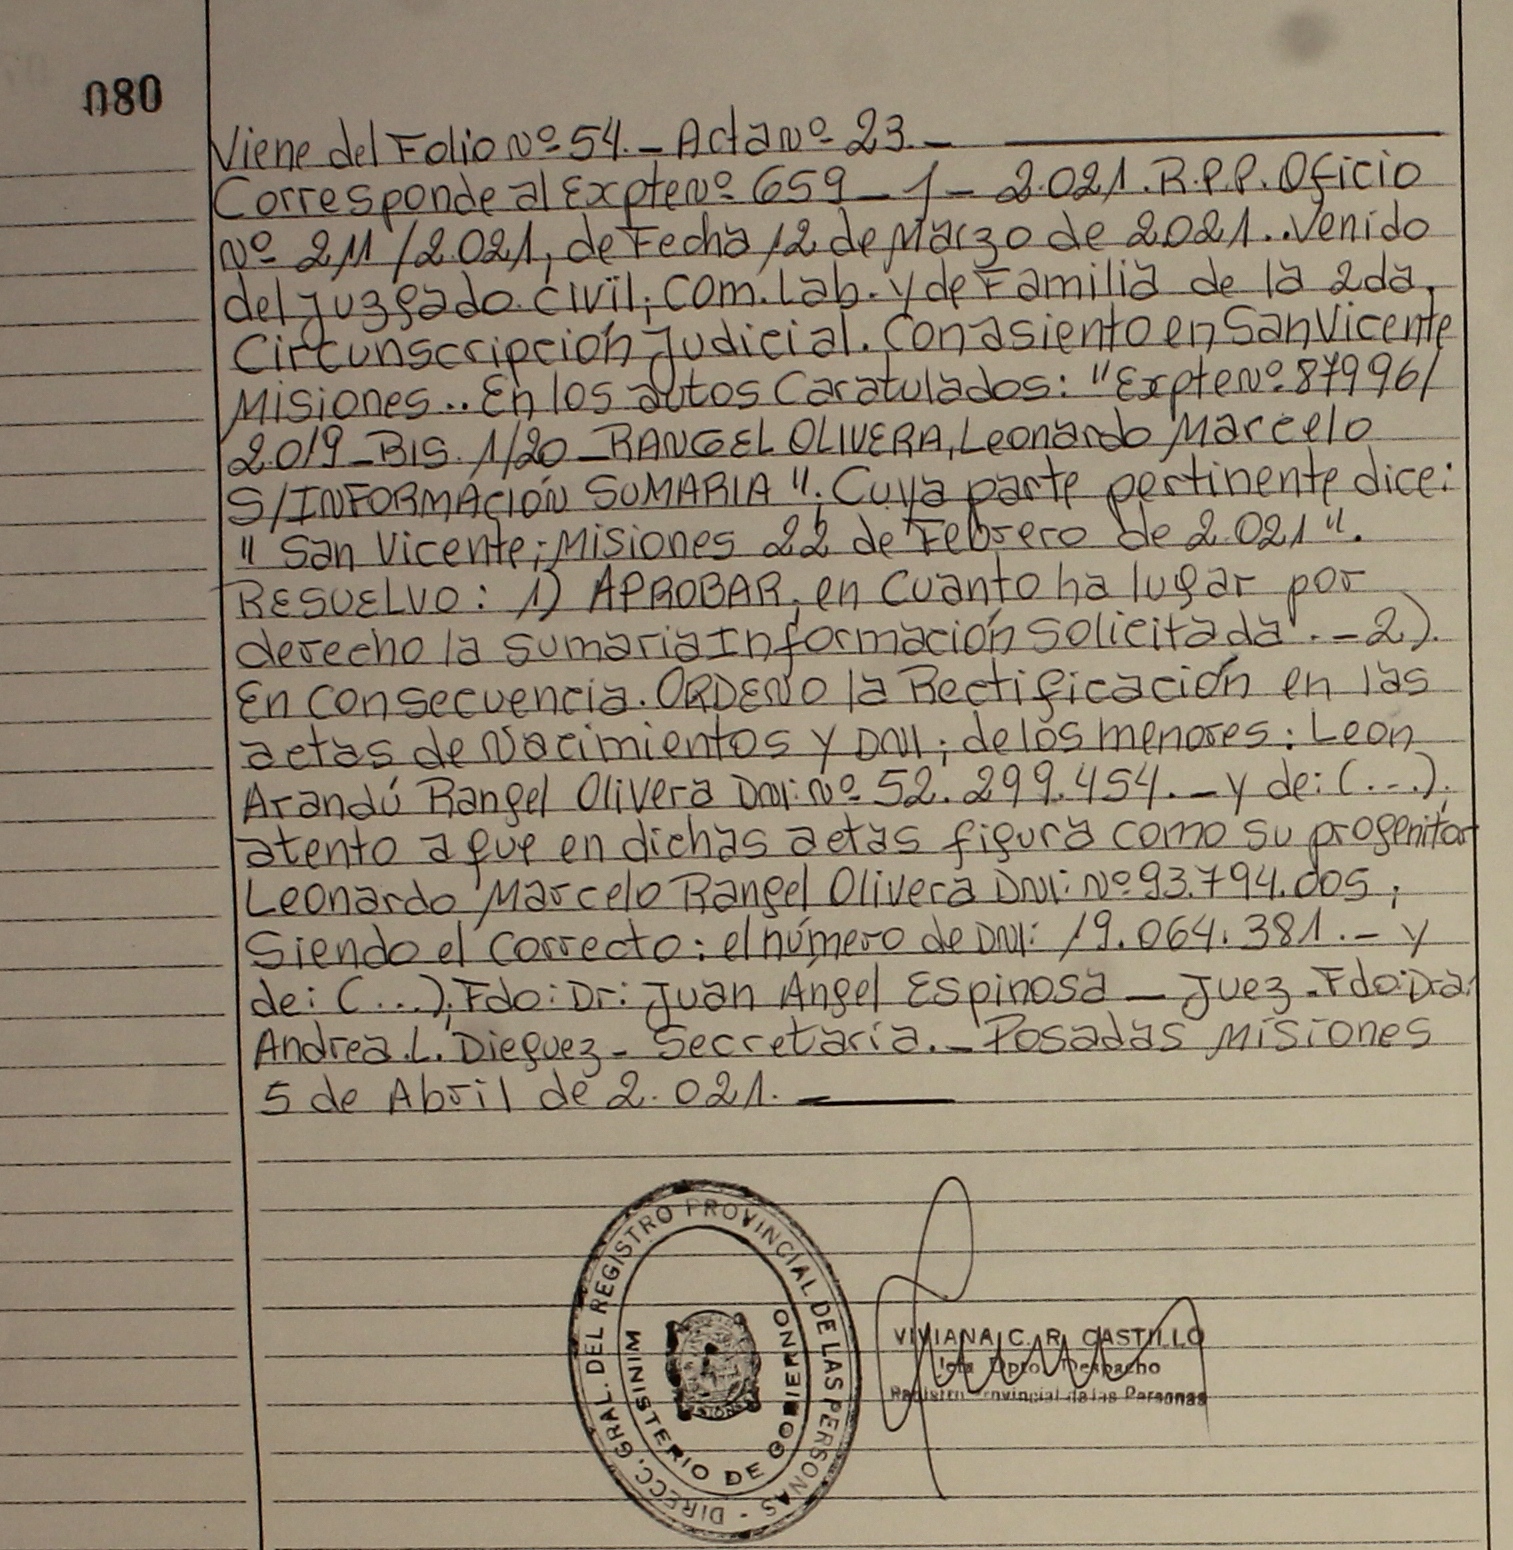 080
Viene del Folio Nº 54. - Acta Nº 23. -
Corresponde al Expte Nº 659 - J - 2.021. R.P.P. Oficio
Nº 211/2021, de Fecha 12 de Marzo de 2.021.. Venido
del Juzgado. Civil; Com. Lab. y de Familia de la 2da,
Circunscripción Judicial. Con asiento en San Vicente
Misiones.. En los autos Caratulados: "Expte Nº 87996/
2.019 - BIS. 1/20 - RANGEL OLIVERA, Leonardo Marcelo
S/INFORMACIÓN SUMARIA". Cuya parte pertinente dice:
" San Vicente; Misiones 22 de Febrero de 2.021".
RESUELVO: 1) APROBAR, en cuanto ha lugar por
derecho la sumaria Información solicitada. - 2).
En consecuencia. ORDENO la Rectificación en las
actas de Nacimientos y DNI; de los menores: Leon
Arandú Rangel Olivera DNI: Nº 52.299.454. - y de: (...);
atento a que en dichas actas figura como su progenitor
Leonardo Marcelo Rangel Olivera DNI: Nº 93.794.005;
Siendo el correcto: el número de DNI: 19.064.381. - y
de: (...); Fdo: Dr: Juan Ángel Espinosa - Juez. Fdo: Dra:
Andrea. L. Dieguez - Secretaría. - Posadas Misiones
5 de Abril de 2.021.
DIRECC. GRAL. DEL REGISTRO PROVINCIAL DE LAS PERSONAS -
MINISTERIO DE GOBIERNO
VIVIANA C. R. CASTILLO
Jefa Dpto. Despacho
Registro Provincial de las Personas